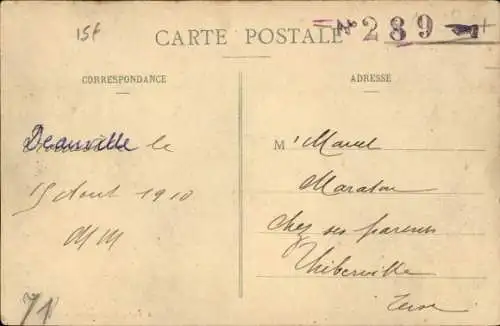 15f
CARTE POSTALE
No 289
CORRESPONDANCE
Deauville le
15 Aout 1910
MM
ADRESSE
M' Marcel
chez ses parents
Thiberville
Eure